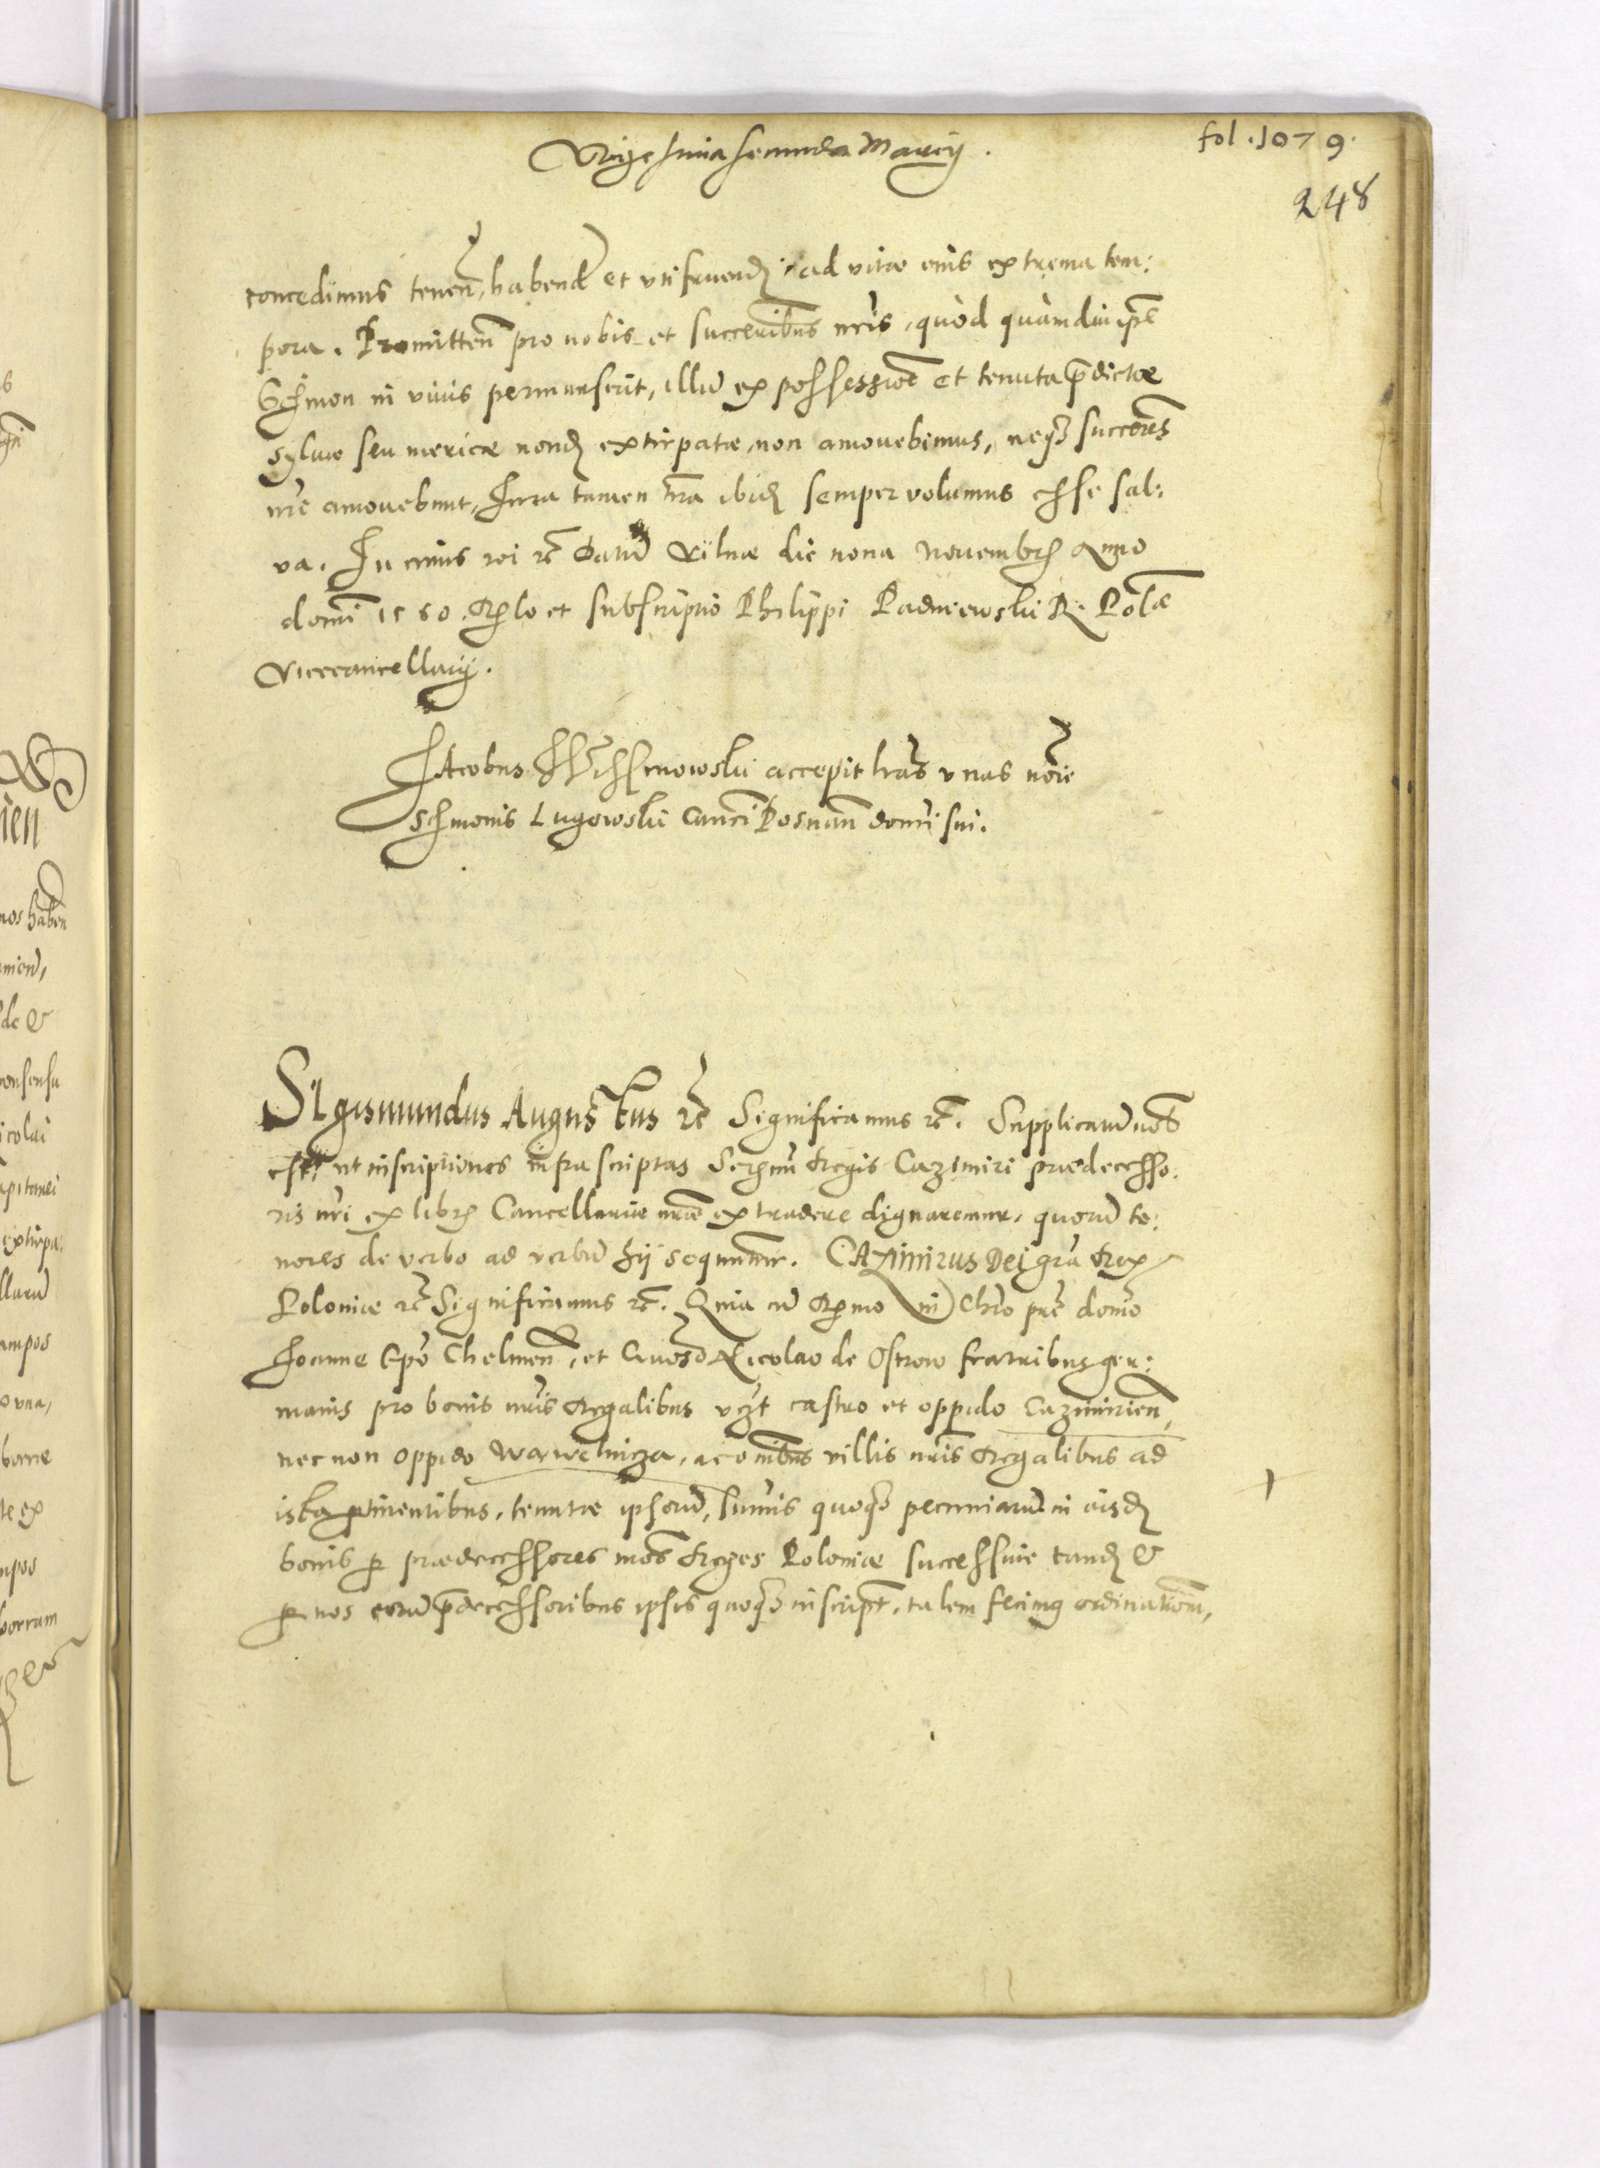 Vigesima secunda Marcij.
fol. 1079.
248
concedimus tenen, habend et utifruend ad vitæ eius extrema tem:
pora. Promitten pro nobis et successoribus nris, quod quamdiu ipse
Schimon in vivis permanserit, illum ex possessione et tenuta prædictæ
Sylvæ seu mericæ nond extirpatæ, non amovebimus, neqz successores
nri amovebunt, Jura tamen nra ibid semper volumus esse sal:
va. In cuius rei etc Datum Vilnæ die nona Novembris Anno
domi 1560. Rlo et subscriptio Philippi Padniewski R. Polæ
Vicecancellarij.
Jacobus accepit lras unas noie
Schimonis Lugowski Canci Posnan domi sui.
Sigismundus Augustus etc Significamus etc. Supplicatum nob
est, ut inscriptiones infra scriptas Sermi Regis Cazimiri prædecesso:
ris nri ex libris Cancellariæ nræ extradere dignaremur, quorum te:
nores de verbo ad verbum hij sequuntur. Cazimirus Dei gra Rex
Poloniæ etc Significamus etc. Quia cum Rmo in Chro pre domo
Joanne Epo Chelmen, et Gnoso Nicolao de Ostrow fratribus ger:
manis pro bonis nris Regalibus vzt castro et oppido Cazimirien,
nec non oppido Wawelnicza, ac omibus villis nris Regalibus ad
ista pertinentibus, tenutæ ipsorum, summis quoqz pecuniarum in eisd
bonis per prædecessores nros Reges Poloniæ successive tand &
per nos eorum prædecessoribus ipsis quoqz inscript, talem fecimus ordinationem,